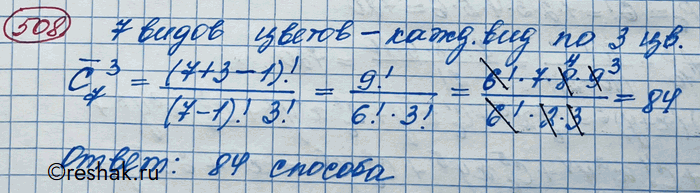 508 7 видов цветов – кажд. вид по 3 цв.
C̄₇³ = (7+3−1)! / (7−1)! 3! = 9! / 6! · 3! = 6! · 7 · 8 · 9 / 6! · 2 · 3 = 84
4 3
Ответ: 84 способа
©reshak.ru